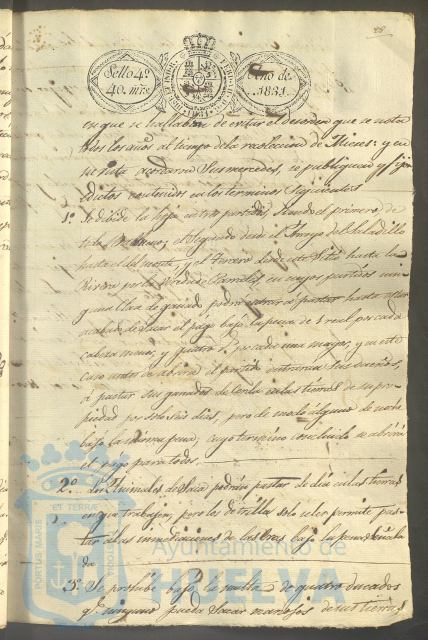 28
Sello 4º
40. mrs.
Año de
1831.
en que se hallaban de evitar el desorden que se nota
todos los años al tiempo de la recoleccion de Mieses: y en
su vista acordaron Sus mercedes, se publiquen y fijen
Edictos contenidos en los terminos siguientes
1º Se divide la hoja en tres partidos, siendo el primero de
el Segundo desde el Arroyo del Saladillo
hasta el del monte, y el Tercero desde este Sitio hasta la
Rivera por la Vereda de Carriles, en cuyos partidos nin
guna Clase de ganado podrá entrar a pastar hasta estar
acabado de sacar el pago bajo la pena de 1 real por cada
cabeza menor, y quatro por cada una mayor, y en este
caso antes de abrirse el partido entrarán Sus dueños,
á pastar sus ganados de Cerda en las tierras de su pro-
piedad por solo seis dias, pero de modo alguno de noche
bajo la misma pena, cuyo termino concluido se abrirá
el pago para todos.
2º Los Animales de Saca podrán pastar de dia en las tierras
en que trabajen, pero los de trilla solo se les permite pas-
tar á las inmediaciones de las Eras bajo la pena señala
da
3º Se prohibe bajo la multa de quatro ducados
qe. ninguno pueda Sacar manojos de sus tierras
PORTUS MARIS
ET TERRÆ
Ayuntamiento de
HUELVA